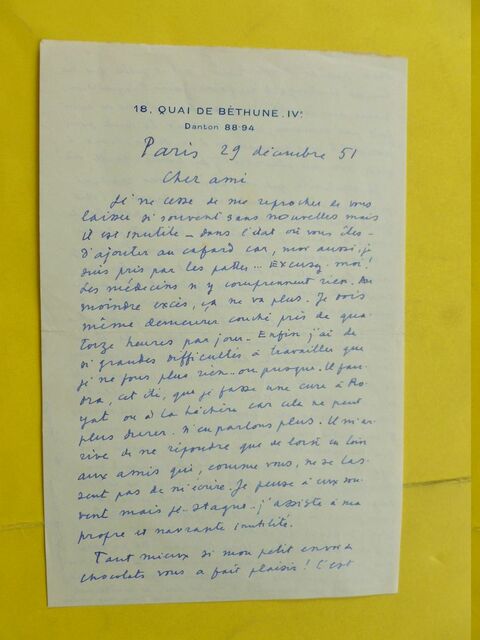 18, QUAI DE BÉTHUNE. IVᵉ
Danton 88-94
Paris 29 décembre 51
Cher ami
Je ne cesse de me reprocher de vous
laisser si souvent sans nouvelles mais
il est inutile – dans l'état où vous êtes –
d'ajouter au cafard car, moi aussi, je
suis pris par les pattes... Excusez-moi!
Les médecins n'y comprennent rien. Au
moindre excès, ça ne va plus. Je dois
même demeurer couché près de qua-
torze heures par jour. Enfin j'ai de
si grandes difficultés à travailler que
je ne fous plus rien.. ou presque. Il fau-
dra, cet été, que je fasse une cure à Ro-
yat ou à la car cela ne peut
plus durer. N'en parlons plus. Il m'ar-
rive de ne répondre que de loin en loin
aux amis qui, comme vous, ne se las-
sent pas de m'écrire. Je pense à eux sou-
vent mais je stagne. j'assiste à ma
propre et navrante inutilité.
Tant mieux si mon petit envoi de
chocolats vous a fait plaisir! C'est